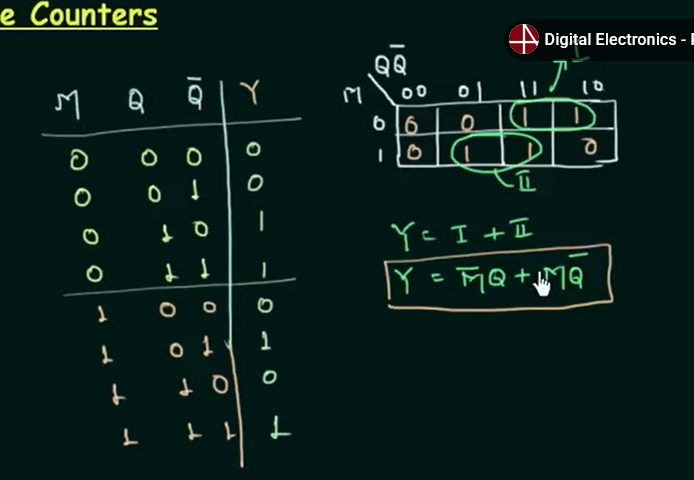 e Counters
Digital Electronics -
M Q Q̄ Y
0 0 0 0
0 0 1 0
0 1 0 1
0 1 1 1
1 0 0 0
1 0 1 1
1 1 0 0
1 1 1 1
I
QQ̄
M 00 01 11 10
0 0 0 1 1
1 0 1 1 0
II
Y = I + II
Y = M̄Q + MQ̄